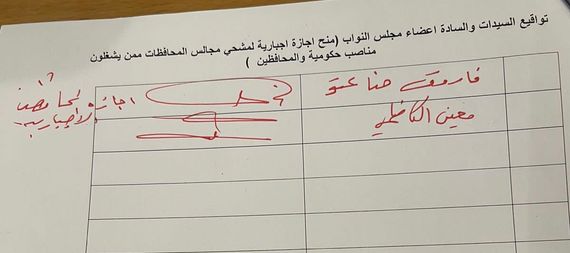 تواقيع السيدات والسادة اعضاء مجلس النواب (منح اجازة اجبارية لمشحي مجالس المحافظات ممن يشغلون
مناصب حكومية والمحافظين )
فاروق حنا عتو
اجازة
معين الكاظمي